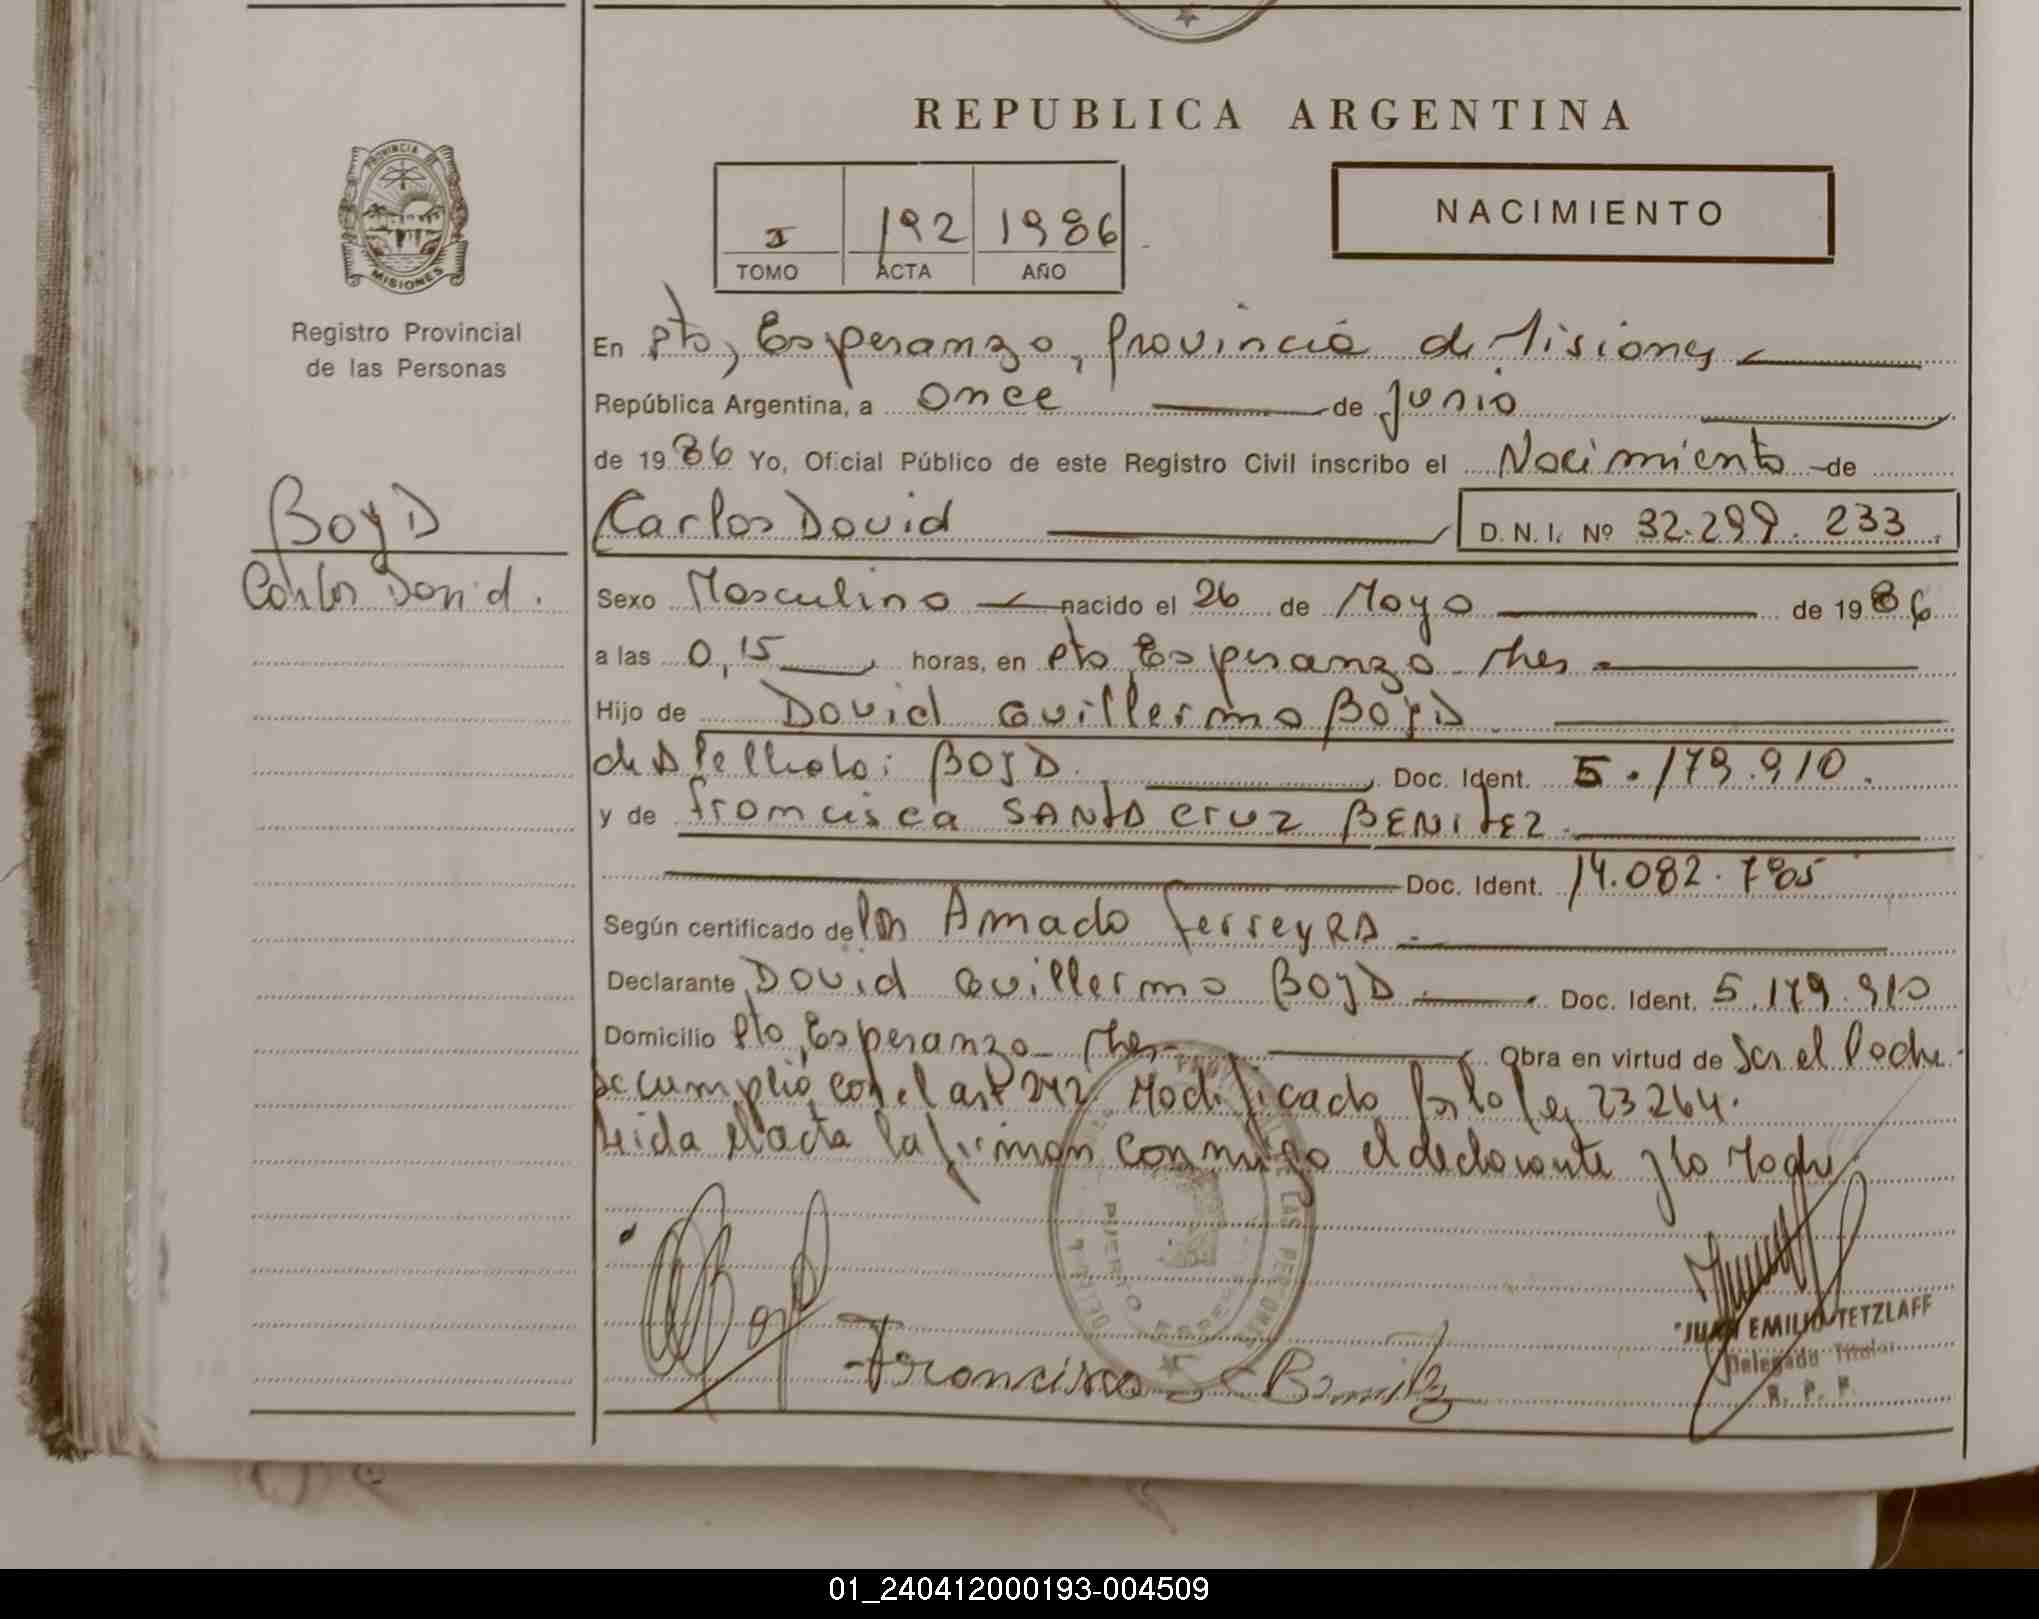 REPUBLICA ARGENTINA
PROVINCIA DE
MISIONES
Registro Provincial
de las Personas
I 192 1986
TOMO ACTA AÑO
NACIMIENTO
En Pto, Esperanza, Provincia de Misiones
República Argentina, a once de Junio
de 1986 Yo, Oficial Público de este Registro Civil inscribo el Nacimiento de
BoyD
Carlos David.
Carlos David D. N. I. Nº 32.299.233
Sexo Masculino nacido el 26 de Mayo de 1986
a las 0,15 horas, en Pto Esperanza Mnes
Hijo de David Guillermo BoyD
de Apellido: BOYD. Doc. Ident. 5.179.910.
y de Francisca SANTA Cruz BENITEZ.
Doc. Ident. 14.082.785
Según certificado de Amado FerreyRA.
Declarante David Guillermo BoyD Doc. Ident. 5.179.910
Domicilio Pto, Esperanza Mnes Obra en virtud de Ser el Padre
se cumplió con el art 242 Modificado por la ley 23264.
Leida el acta la firman conmigo el declarante y la Madre.
PUERTO
LAS PERSONAS
Francisca S Benitez
JUAN EMILIO TETZLAFF
Delegado Titular
R. P. P.
01_240412000193-004509